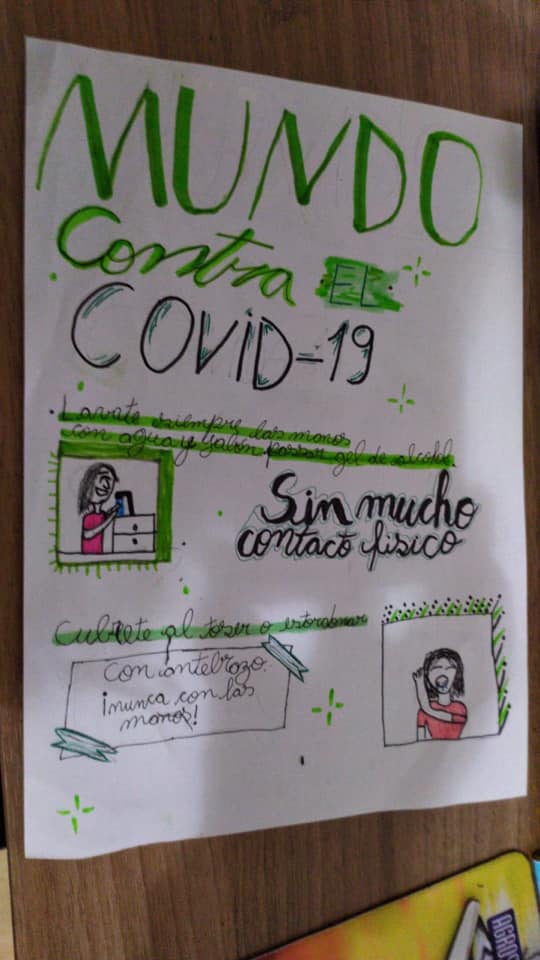 MUNDO
Contra EL
COVID-19
Lavate siempre las manos
con agua y jabón, passar gel de alcohol.
Sin mucho
contacto fisico
Cubrete al toser o estornudar
Con antebrazo.
¡nunca con las
manos!
AGROS